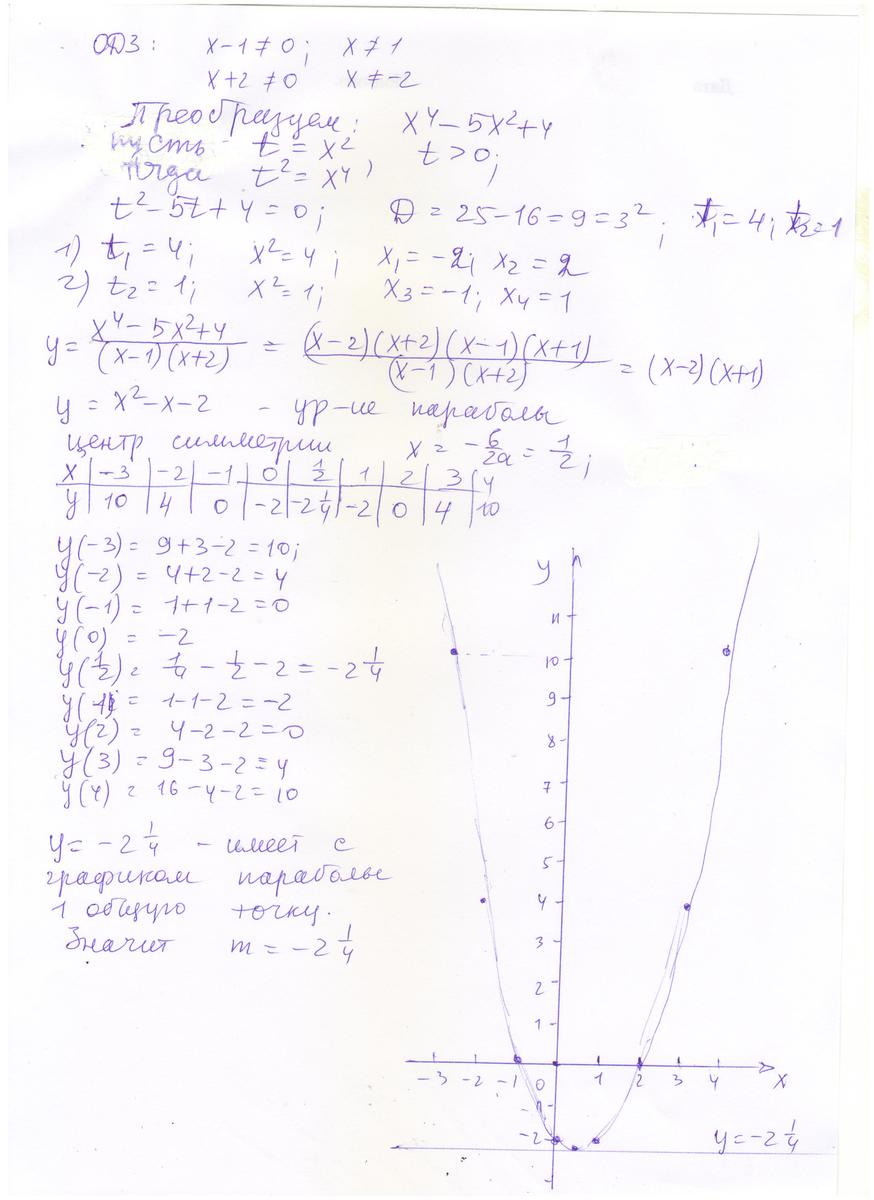 ОДЗ: x-1≠0; x≠1
x+2≠0 x≠-2
Преобразуем: x⁴-5x²+4
пусть t = x² t>0;
тогда t² = x⁴,
t²-5t+4=0; D=25-16=9=3²; t₁=4; t₂=1
1) t₁=4; x²=4; x₁=-2; x₂=2
2) t₂=1; x²=1; x₃=-1; x₄=1
y= (x⁴-5x²+4)/((x-1)(x+2)) = ((x-2)(x+2)(x-1)(x+1))/((x-1)(x+2)) = (x-2)(x+1)
y = x²-x-2 - ур-ие параболы
центр симметрии x = -b/2a = 1/2;
x | -3 | -2 | -1 | 0 | 1/2 | 1 | 2 | 3 | 4
y | 10 | 4 | 0 | -2 | -2 1/4 | -2 | 0 | 4 | 10
y(-3) = 9+3-2=10;
y(-2) = 4+2-2=4
y(-1) = 1+1-2=0
y(0) = -2
y(1/2) = 1/4 - 1/2 - 2 = -2 1/4
y(1) = 1-1-2=-2
y(2) = 4-2-2=0
y(3) = 9-3-2=4
y(4) = 16-4-2=10
y= -2 1/4 - имеет с
графиком параболы
1 общую точку.
Значит m = -2 1/4
y
11
10
9
8
7
6
5
4
3
2
1
-3 -2 -1 0 1 2 3 4 x
-1
-2
y=-2 1/4